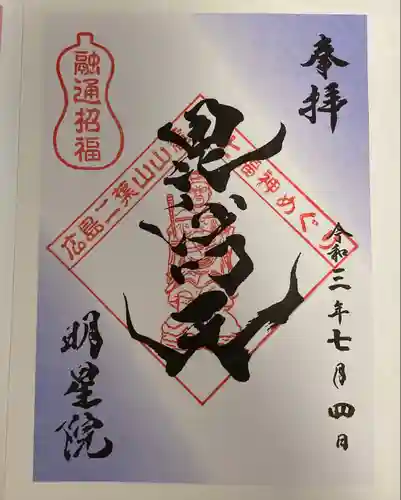 奉拝
令和三年七月四日
毘沙門天
融通招福
広島二葉山山麓七福神めぐり
明星院